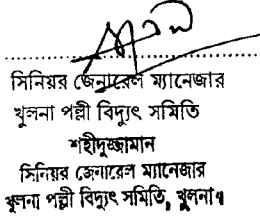 সিনিয়র জেনারেল ম্যানেজার
খুলনা পল্লী বিদ্যুৎ সমিতি
শহীদুজ্জামান
সিনিয়র জেনারেল ম্যানেজার
খুলনা পল্লী বিদ্যুৎ সমিতি, খুলনা।